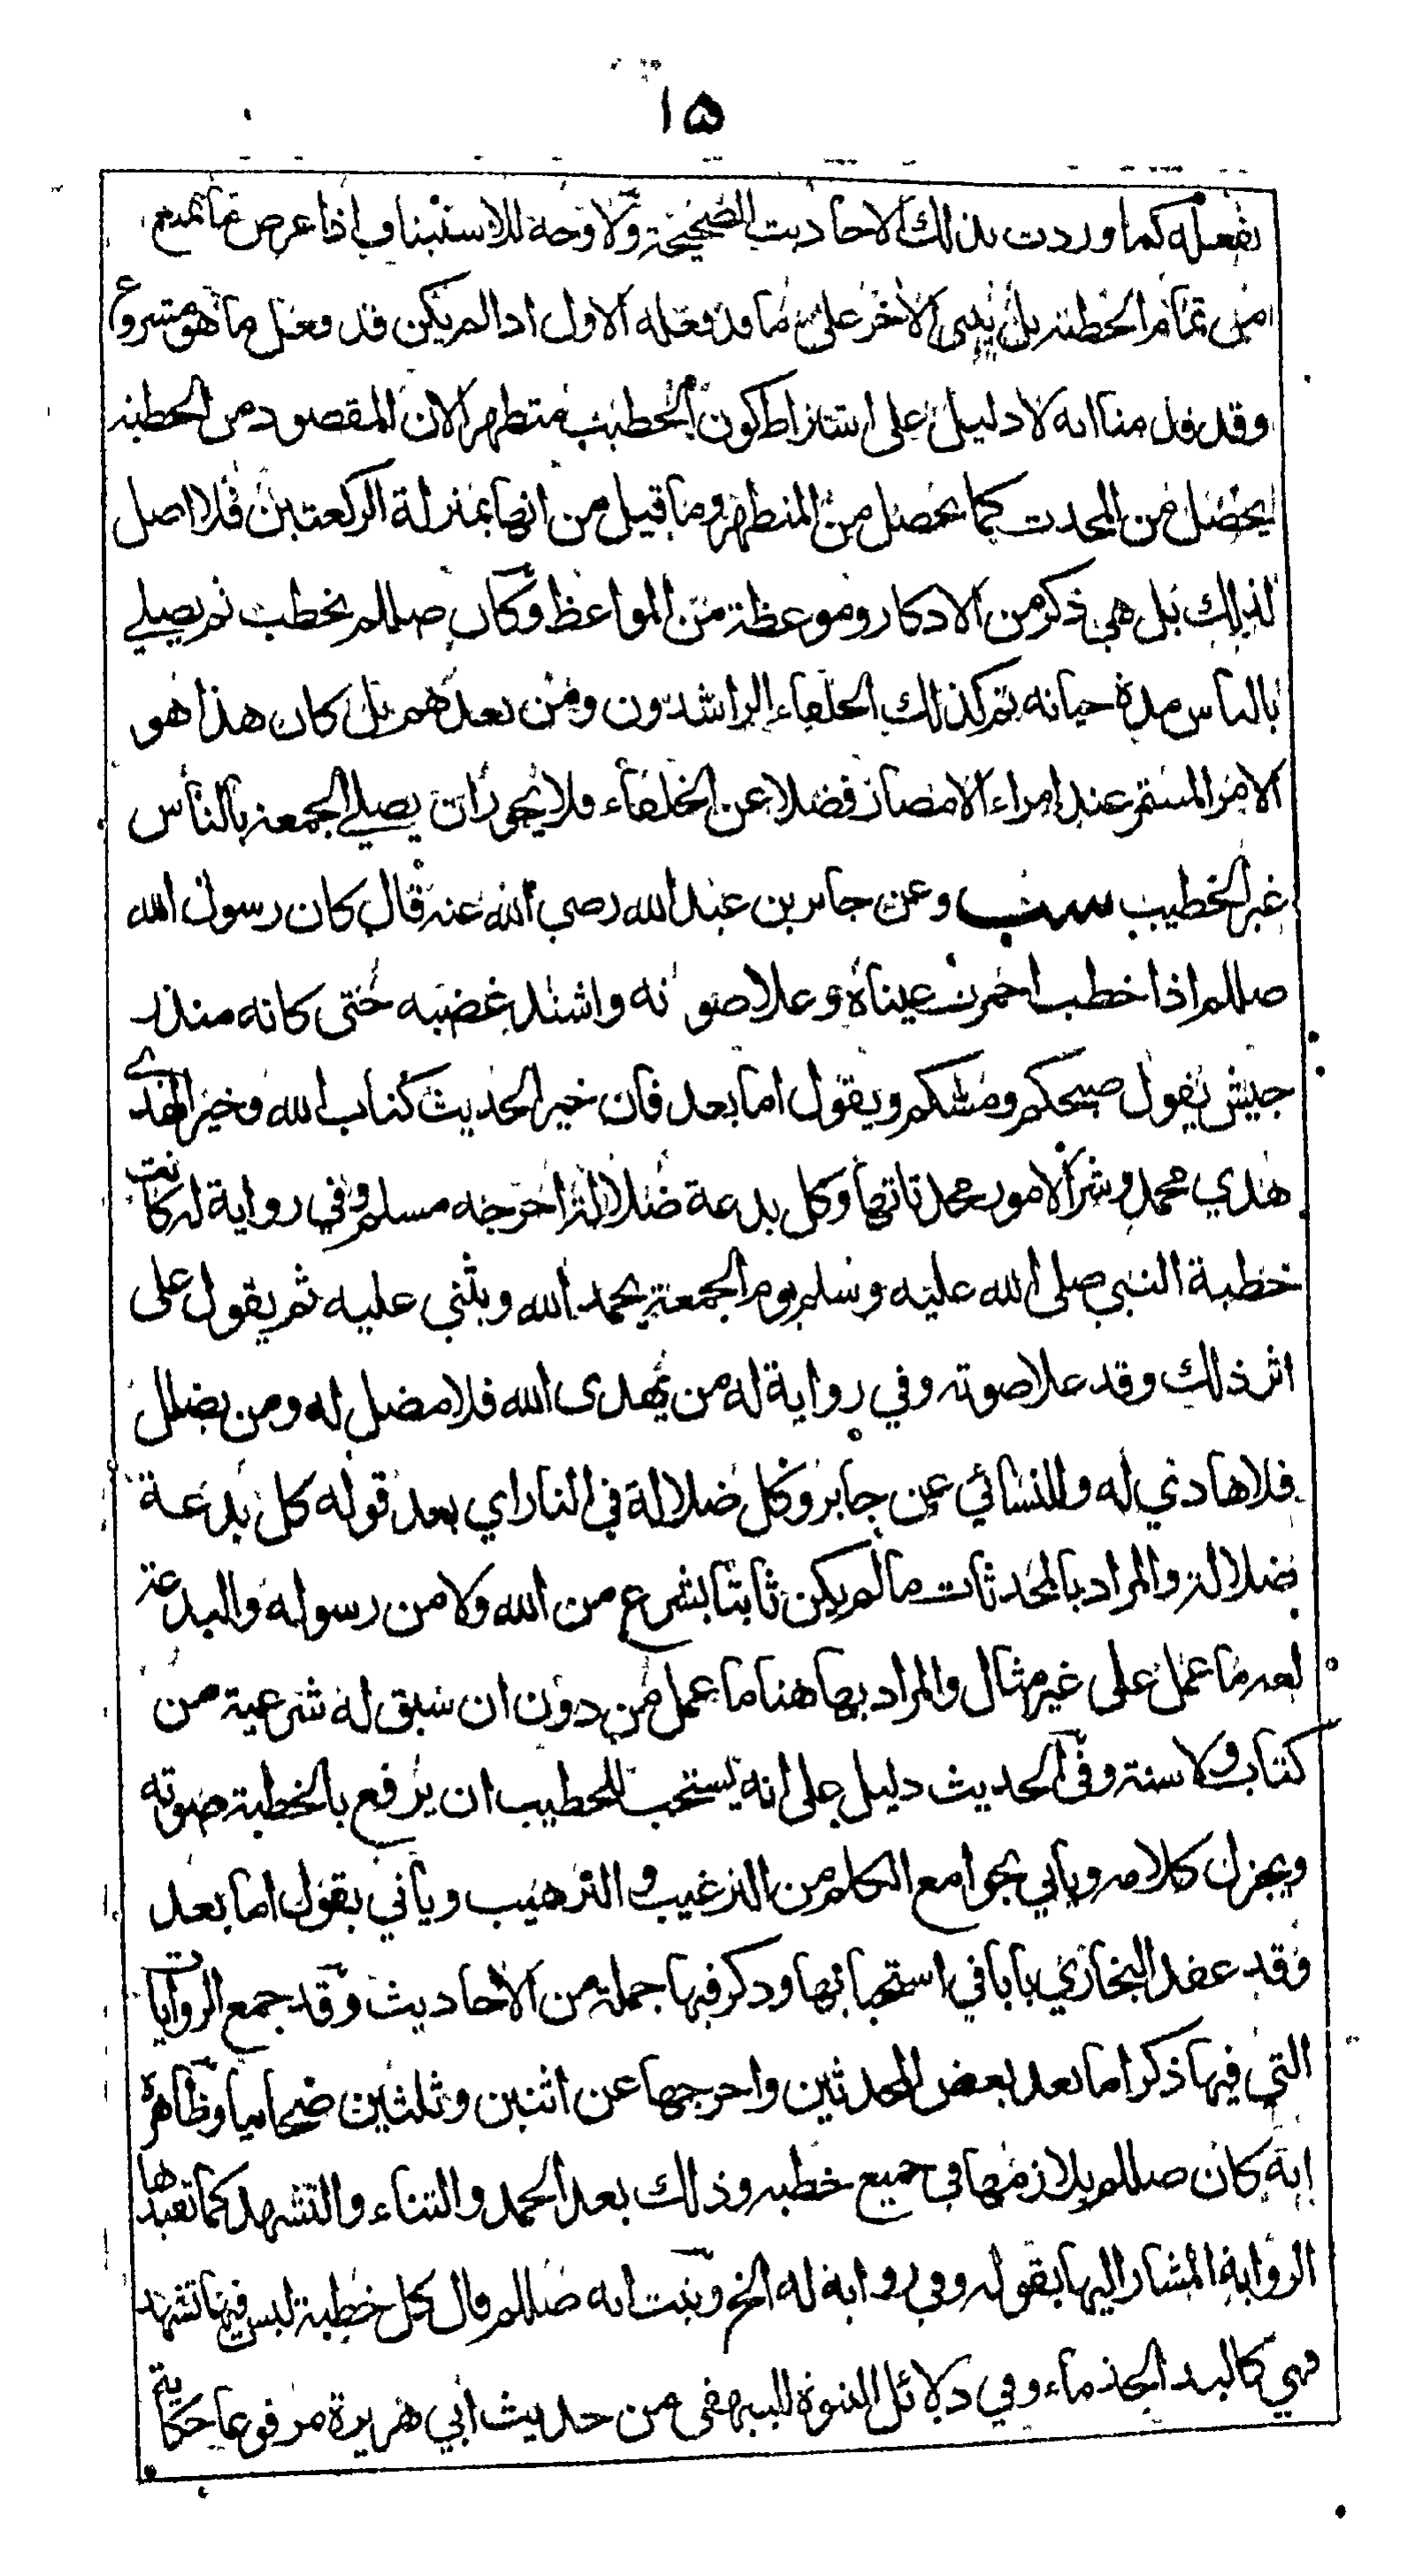 ١٥
بفعله كما وردت بذلك الاحاديث الصحيحة ولا وجه للاستيناف اذا عرض ما يمنع
من تمام الخطبة بل يبني الاخر على ما قد فعله الاول اذا لم يكن قد فعل ما هو مشروع
وقد قدمنا انه لا دليل على اشتراط كون الخطيب متطهرا لان المقصود من الخطبة
يحصل من المحدث كما يحصل من المتطهر وما قيل من انها بمنزلة الركعتين فلا اصل
لذلك بل هي ذكر من الاذكار وموعظة من المواعظ وكان صللم يخطب ثم يصلي
بالناس مدة حياته ثم كذلك الخلفاء الراشدون ومن بعدهم بل كان هذا هو
الامر المستمر عند امراء الامصار فضلا عن الخلفاء فلا يجوز ان يصلي الجمعة بالناس
غير الخطيب وعن جابر بن عبد الله رضي الله عنه قال كان رسول الله
صللم اذا خطب احمرت عيناه وعلا صوته واشتد غضبه حتى كانه منذر
جيش يقول صبحكم ومسكم ويقول اما بعد فان خير الحديث كتاب الله وخير الهدى
هدي محمد وشر الامور محدثاتها وكل بدعة ضلالة اخرجه مسلم وفي رواية له كانت
خطبة النبي صلى الله عليه وسلم يوم الجمعة يحمد الله ويثني عليه ثم يقول على
اثر ذلك وقد علا صوته وفي رواية له من يهدى الله فلا مضل له ومن يضلل
فلا هادي له وللنسائي عن جابر وكل ضلالة في النار اي بعد قوله كل بدعة
ضلالة والمراد بالمحدثات ما لم يكن ثابتا بشرع من الله ولا من رسوله والبدعة
لغة ما عمل على غير مثال والمراد بها هنا ما عمل من دون ان سبق له شرعية من
كتاب ولا سنة وفي الحديث دليل على انه يستحب للخطيب ان يرفع بالخطبة صوته
ويجزل كلامه ويأتي بجوامع الكلم من الترغيب والترهيب ويأتي بقول اما بعد
وقد عقد البخاري بابا في استحبابها وذكر فيها جملة من الاحاديث وقد جمع الروايات
التي فيها ذكر اما بعد بعض المحدثين واخرجها عن اثنين وثلثين صحابيا وظاهره
انه كان صللم يلازمها في جميع خطبه وذلك بعد الحمد والثناء والتشهد كما تفيدها
الرواية المشار اليها بقوله وفي رواية له الخ وثبت انه صللم قال كل خطبة ليس فيها تشهد
فهي كاليد الجذماء وفي دلائل النبوة للبيهقي من حديث أبي هريرة مرفوعا حكاية